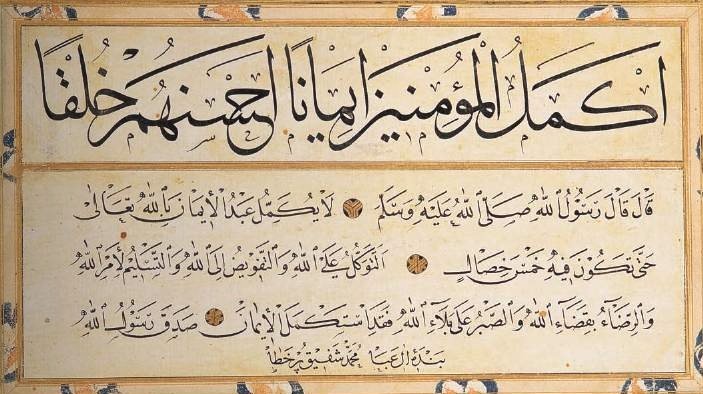 اَكْمَلُ الْمُؤْمِنِينَ اِيمَانًا اَحْسَنُهُمْ خُلُقًا
قَالَ قَالَ رَسُولُ اللهِ صَلَّى اللهُ عَلَيْهِ وَسَلَّمَ لَا يُكَمِّلُ عَبْدُ الْاِيمَانِ بِاللهِ تَعَالٰى
حَتّٰى تَكُونَ فِيهِ خَمْسُ خِصَالٍ اَلتَّوَكُّلُ عَلَى اللهِ وَالتَّفْوِيضُ اِلَى اللهِ وَالتَّسْلِيمُ لِاَمْرِ اللهِ
وَالرِّضَاءُ بِقَضَاءِ اللهِ وَالصَّبْرُ عَلٰى بَلَاءِ اللهِ فَقَدِ اسْتَكْمَلَ الْاِيمَانَ صَدَقَ رَسُولُ اللهِ
بندهٔ آل عبا محمد شفيق